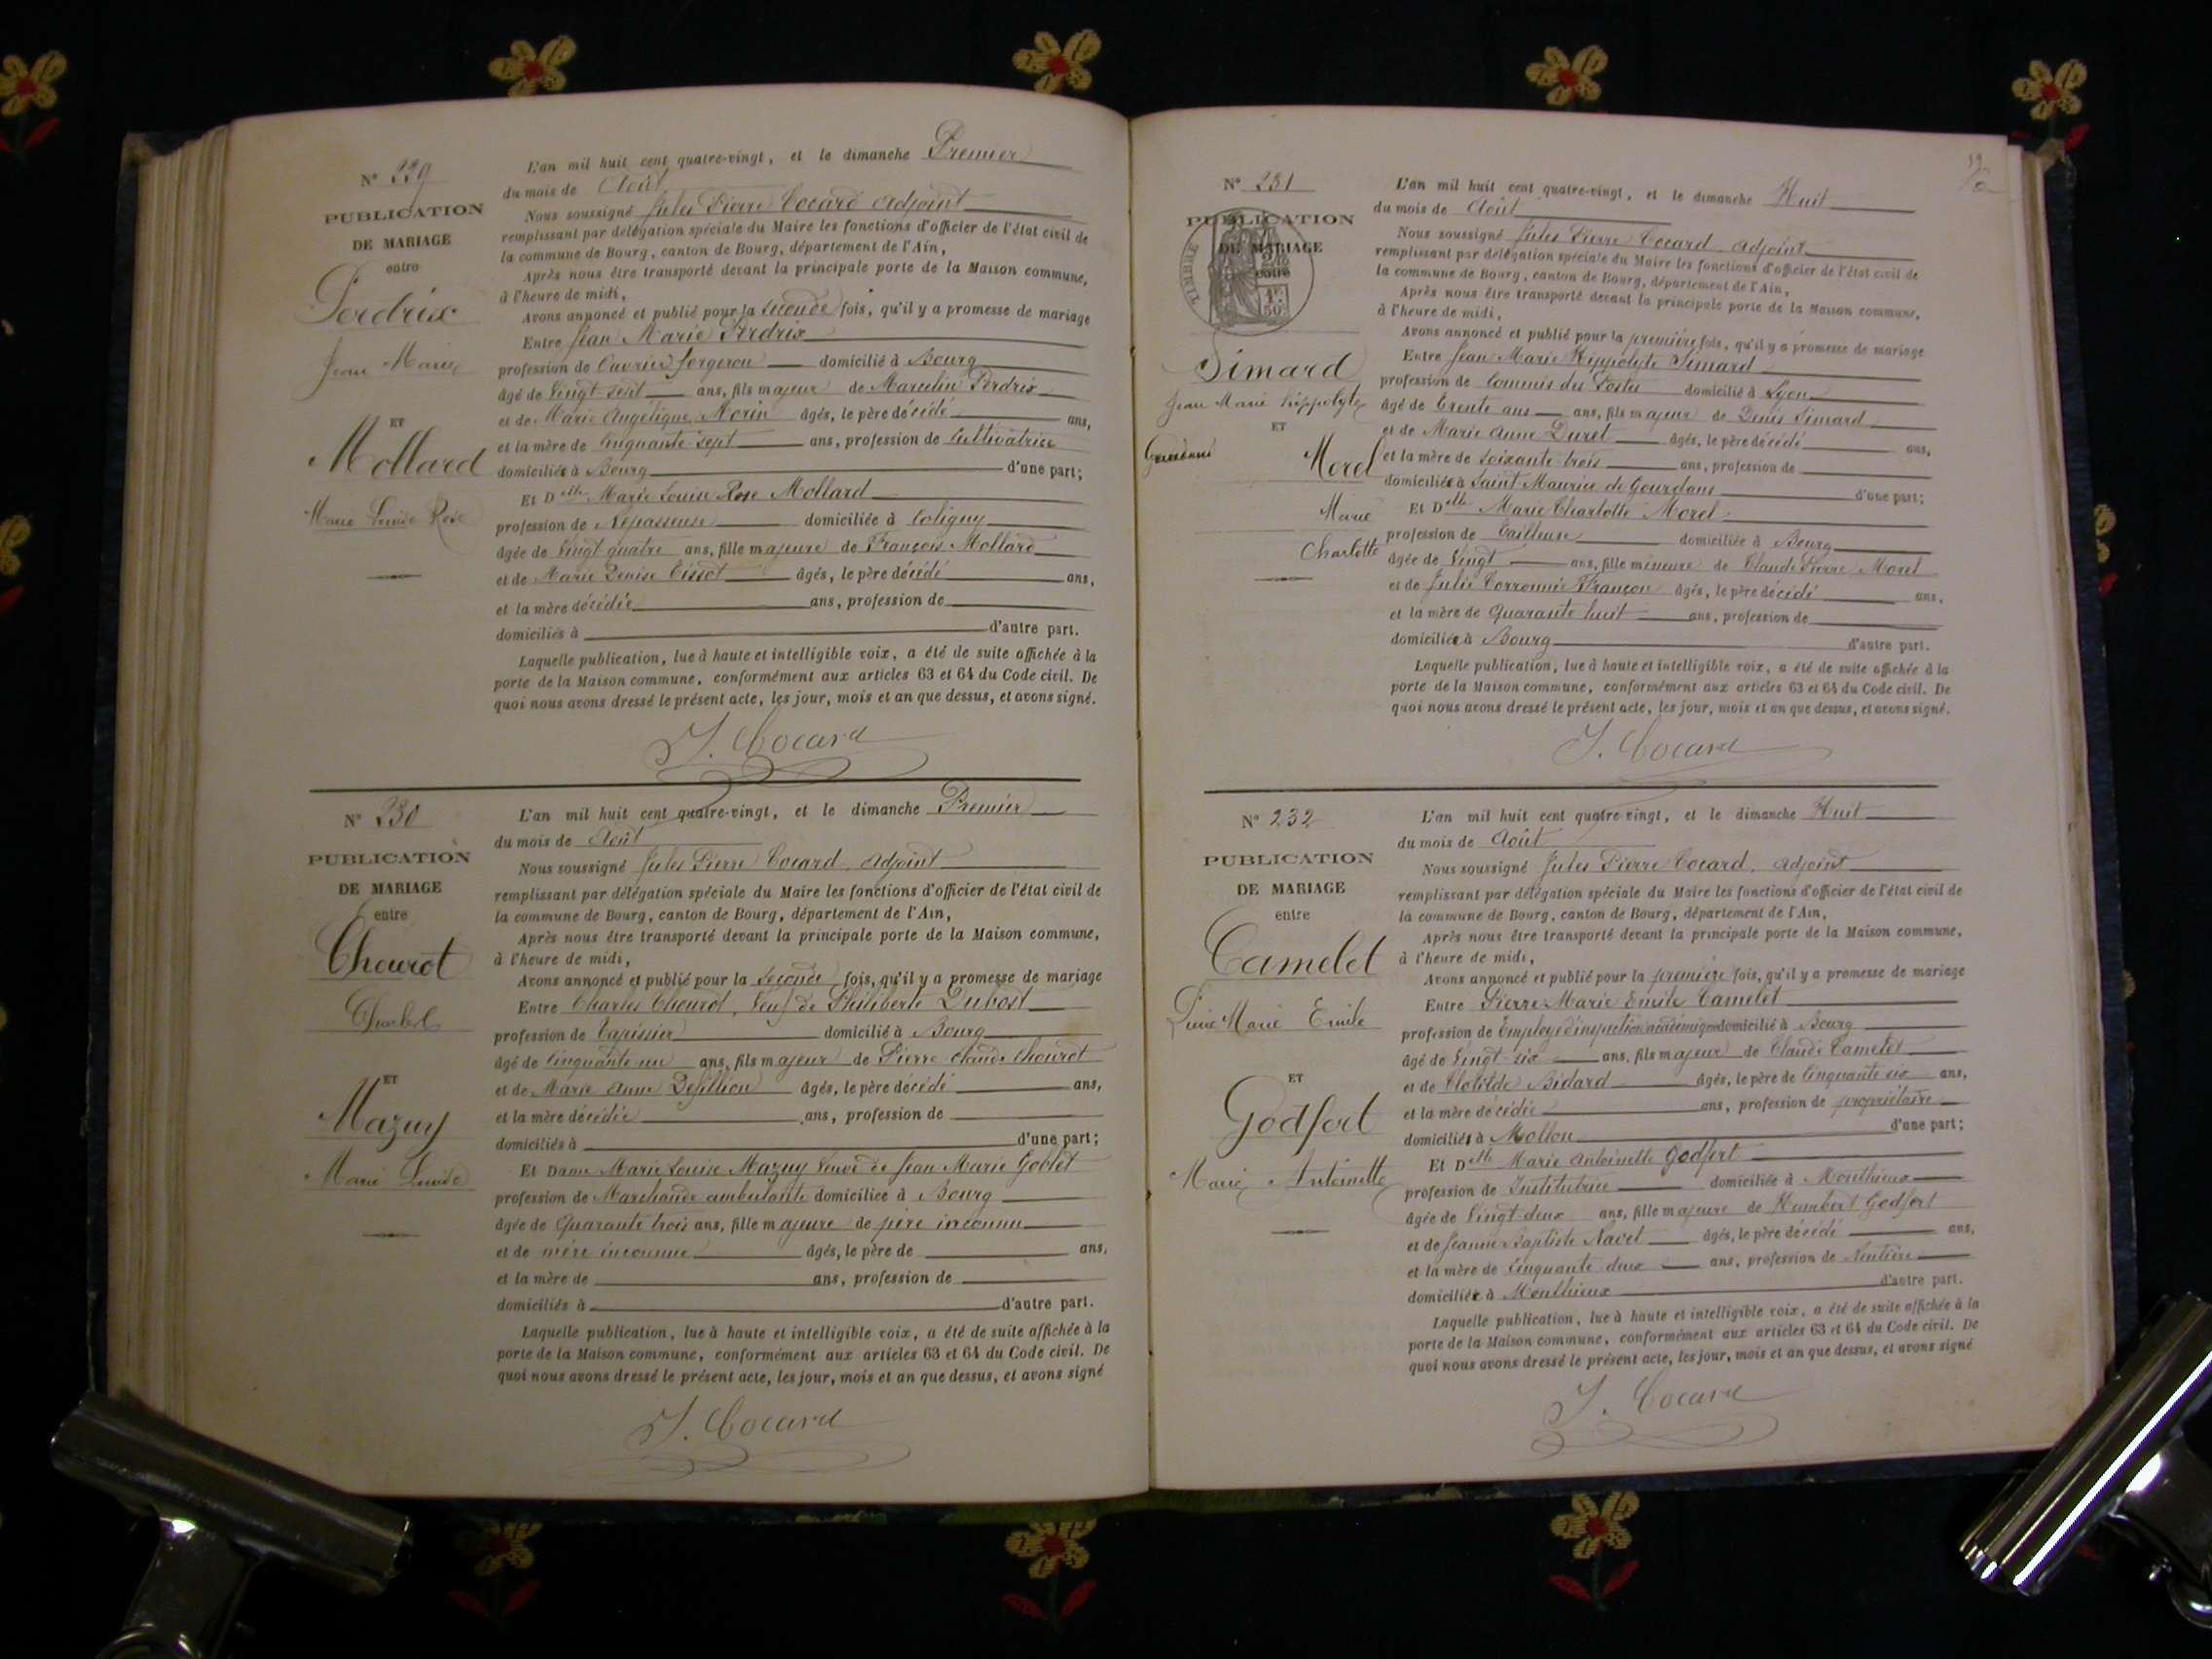 N° 229
PUBLICATION
DE MARIAGE
entre
Perdrix
Jean Marie
ET
Mollard
Marie Louise Rose
L'an mil huit cent quatre-vingt, et le dimanche Premier
du mois de Août
Nous soussigné Jules Pierre Cocard adjoint
remplissant par délégation spéciale du Maire les fonctions d'officier de l'état civil de
la commune de Bourg, canton de Bourg, département de l'Ain,
Après nous être transporté devant la principale porte de la Maison commune,
à l'heure de midi,
Avons annoncé et publié pour la seconde fois, qu'il y a promesse de mariage
Entre Jean Marie Perdrix
profession de Ouvrier forgeron domicilié à Bourg
âgé de Vingt sept ans, fils majeur de Marcelin Perdrix
et de Marie Angélique Morin âgés, le père décédé ans,
et la mère de Cinquante sept ans, profession de Cultivatrice
domiciliée à Bourg d'une part;
Et Delle Marie Louise Rose Mollard
profession de Repasseuse domiciliée à Coligny
âgée de Vingt quatre ans, fille majeure de François Mollard
et de Marie Denise Tissot âgés, le père décédé ans,
et la mère décédée ans, profession de
domiciliés à d'autre part.
Laquelle publication, lue à haute et intelligible voix, a été de suite affichée à la
porte de la Maison commune, conformément aux articles 63 et 64 du Code civil. De
quoi nous avons dressé le présent acte, les jour, mois et an que dessus, et avons signé.
J. Cocard
N° 230
PUBLICATION
DE MARIAGE
entre
Chourot
Charles
ET
Mazuy
Marie Louise
L'an mil huit cent quatre-vingt, et le dimanche Premier
du mois de Août
Nous soussigné Jules Pierre Cocard, adjoint
remplissant par délégation spéciale du Maire les fonctions d'officier de l'état civil de
la commune de Bourg, canton de Bourg, département de l'Ain,
Après nous être transporté devant la principale porte de la Maison commune,
à l'heure de midi,
Avons annoncé et publié pour la seconde fois, qu'il y a promesse de mariage
Entre Charles Chourot, Veuf de Philiberte Dubost
profession de Tapissier domicilié à Bourg
âgé de Cinquante un ans, fils majeur de Pierre Claude Chourot
et de Marie Anne âgés, le père décédé ans,
et la mère décédée ans, profession de
domiciliés à d'une part;
Et Dame Marie Louise Mazuy Veuve de Jean Marie Goblet
profession de Marchande ambulante domiciliée à Bourg
âgée de Quarante trois ans, fille majeure de père inconnu
et de mère inconnue âgés, le père de ans,
et la mère de ans, profession de
domiciliés à d'autre part.
Laquelle publication, lue à haute et intelligible voix, a été de suite affichée à la
porte de la Maison commune, conformément aux articles 63 et 64 du Code civil. De
quoi nous avons dressé le présent acte, les jour, mois et an que dessus, et avons signé
J. Cocard
N° 231
PUBLICATION
DE MARIAGE
entre
TIMBRE
Simard
Jean Marie hippolyte
ET
Morel
Marie
Charlotte
L'an mil huit cent quatre-vingt, et le dimanche Huit
du mois de Août
Nous soussigné Jules Pierre Cocard, adjoint
remplissant par délégation spéciale du Maire les fonctions d'officier de l'état civil de
la commune de Bourg, canton de Bourg, département de l'Ain,
Après nous être transporté devant la principale porte de la Maison commune,
à l'heure de midi,
Avons annoncé et publié pour la première fois, qu'il y a promesse de mariage
Entre Jean Marie Hyppolyte Simard
profession de Commis des Postes domicilié à Lyon
âgé de Trente ans ans, fils majeur de Denis Simard
et de Marie Anne Duret âgés, le père décédé ans,
et la mère de Soixante trois ans, profession de
domiciliée à Saint Maurice de Gourdans d'une part;
Et Delle Marie Charlotte Morel
profession de Tailleuse domiciliée à Bourg
âgée de Vingt ans, fille mineure de Claude Pierre Morel
et de Julie Françon âgés, le père décédé ans,
et la mère de Quarante huit ans, profession de
domiciliée à Bourg d'autre part.
Laquelle publication, lue à haute et intelligible voix, a été de suite affichée à la
porte de la Maison commune, conformément aux articles 63 et 64 du Code civil. De
quoi nous avons dressé le présent acte, les jour, mois et an que dessus, et avons signé.
J. Cocard
N° 232
PUBLICATION
DE MARIAGE
entre
Camelet
Pierre Marie Emile
ET
Godfert
Marie Antoinette
L'an mil huit cent quatre-vingt, et le dimanche Huit
du mois de Août
Nous soussigné Jules Pierre Cocard, adjoint
remplissant par délégation spéciale du Maire les fonctions d'officier de l'état civil de
la commune de Bourg, canton de Bourg, département de l'Ain,
Après nous être transporté devant la principale porte de la Maison commune,
à l'heure de midi,
Avons annoncé et publié pour la première fois, qu'il y a promesse de mariage
Entre Pierre Marie Emile Camelet
profession de Employé d'inspection académique domicilié à Bourg
âgé de Vingt six ans, fils majeur de Claude Camelet
et de Clotilde Bidard âgés, le père de Cinquante six ans,
et la mère décédée ans, profession de propriétaire
domicilié à Mollon d'une part;
Et Delle Marie Antoinette Godfert
profession de Institutrice domiciliée à Monthieux
âgée de Vingt-deux ans, fille majeure de Humbert Godfert
et de Jeanne Baptiste Navet âgés, le père décédé ans,
et la mère de Cinquante deux ans, profession de Rentière
domiciliée à Monthieux d'autre part.
Laquelle publication, lue à haute et intelligible voix, a été de suite affichée à la
porte de la Maison commune, conformément aux articles 63 et 64 du Code civil. De
quoi nous avons dressé le présent acte, les jour, mois et an que dessus, et avons signé
J. Cocard